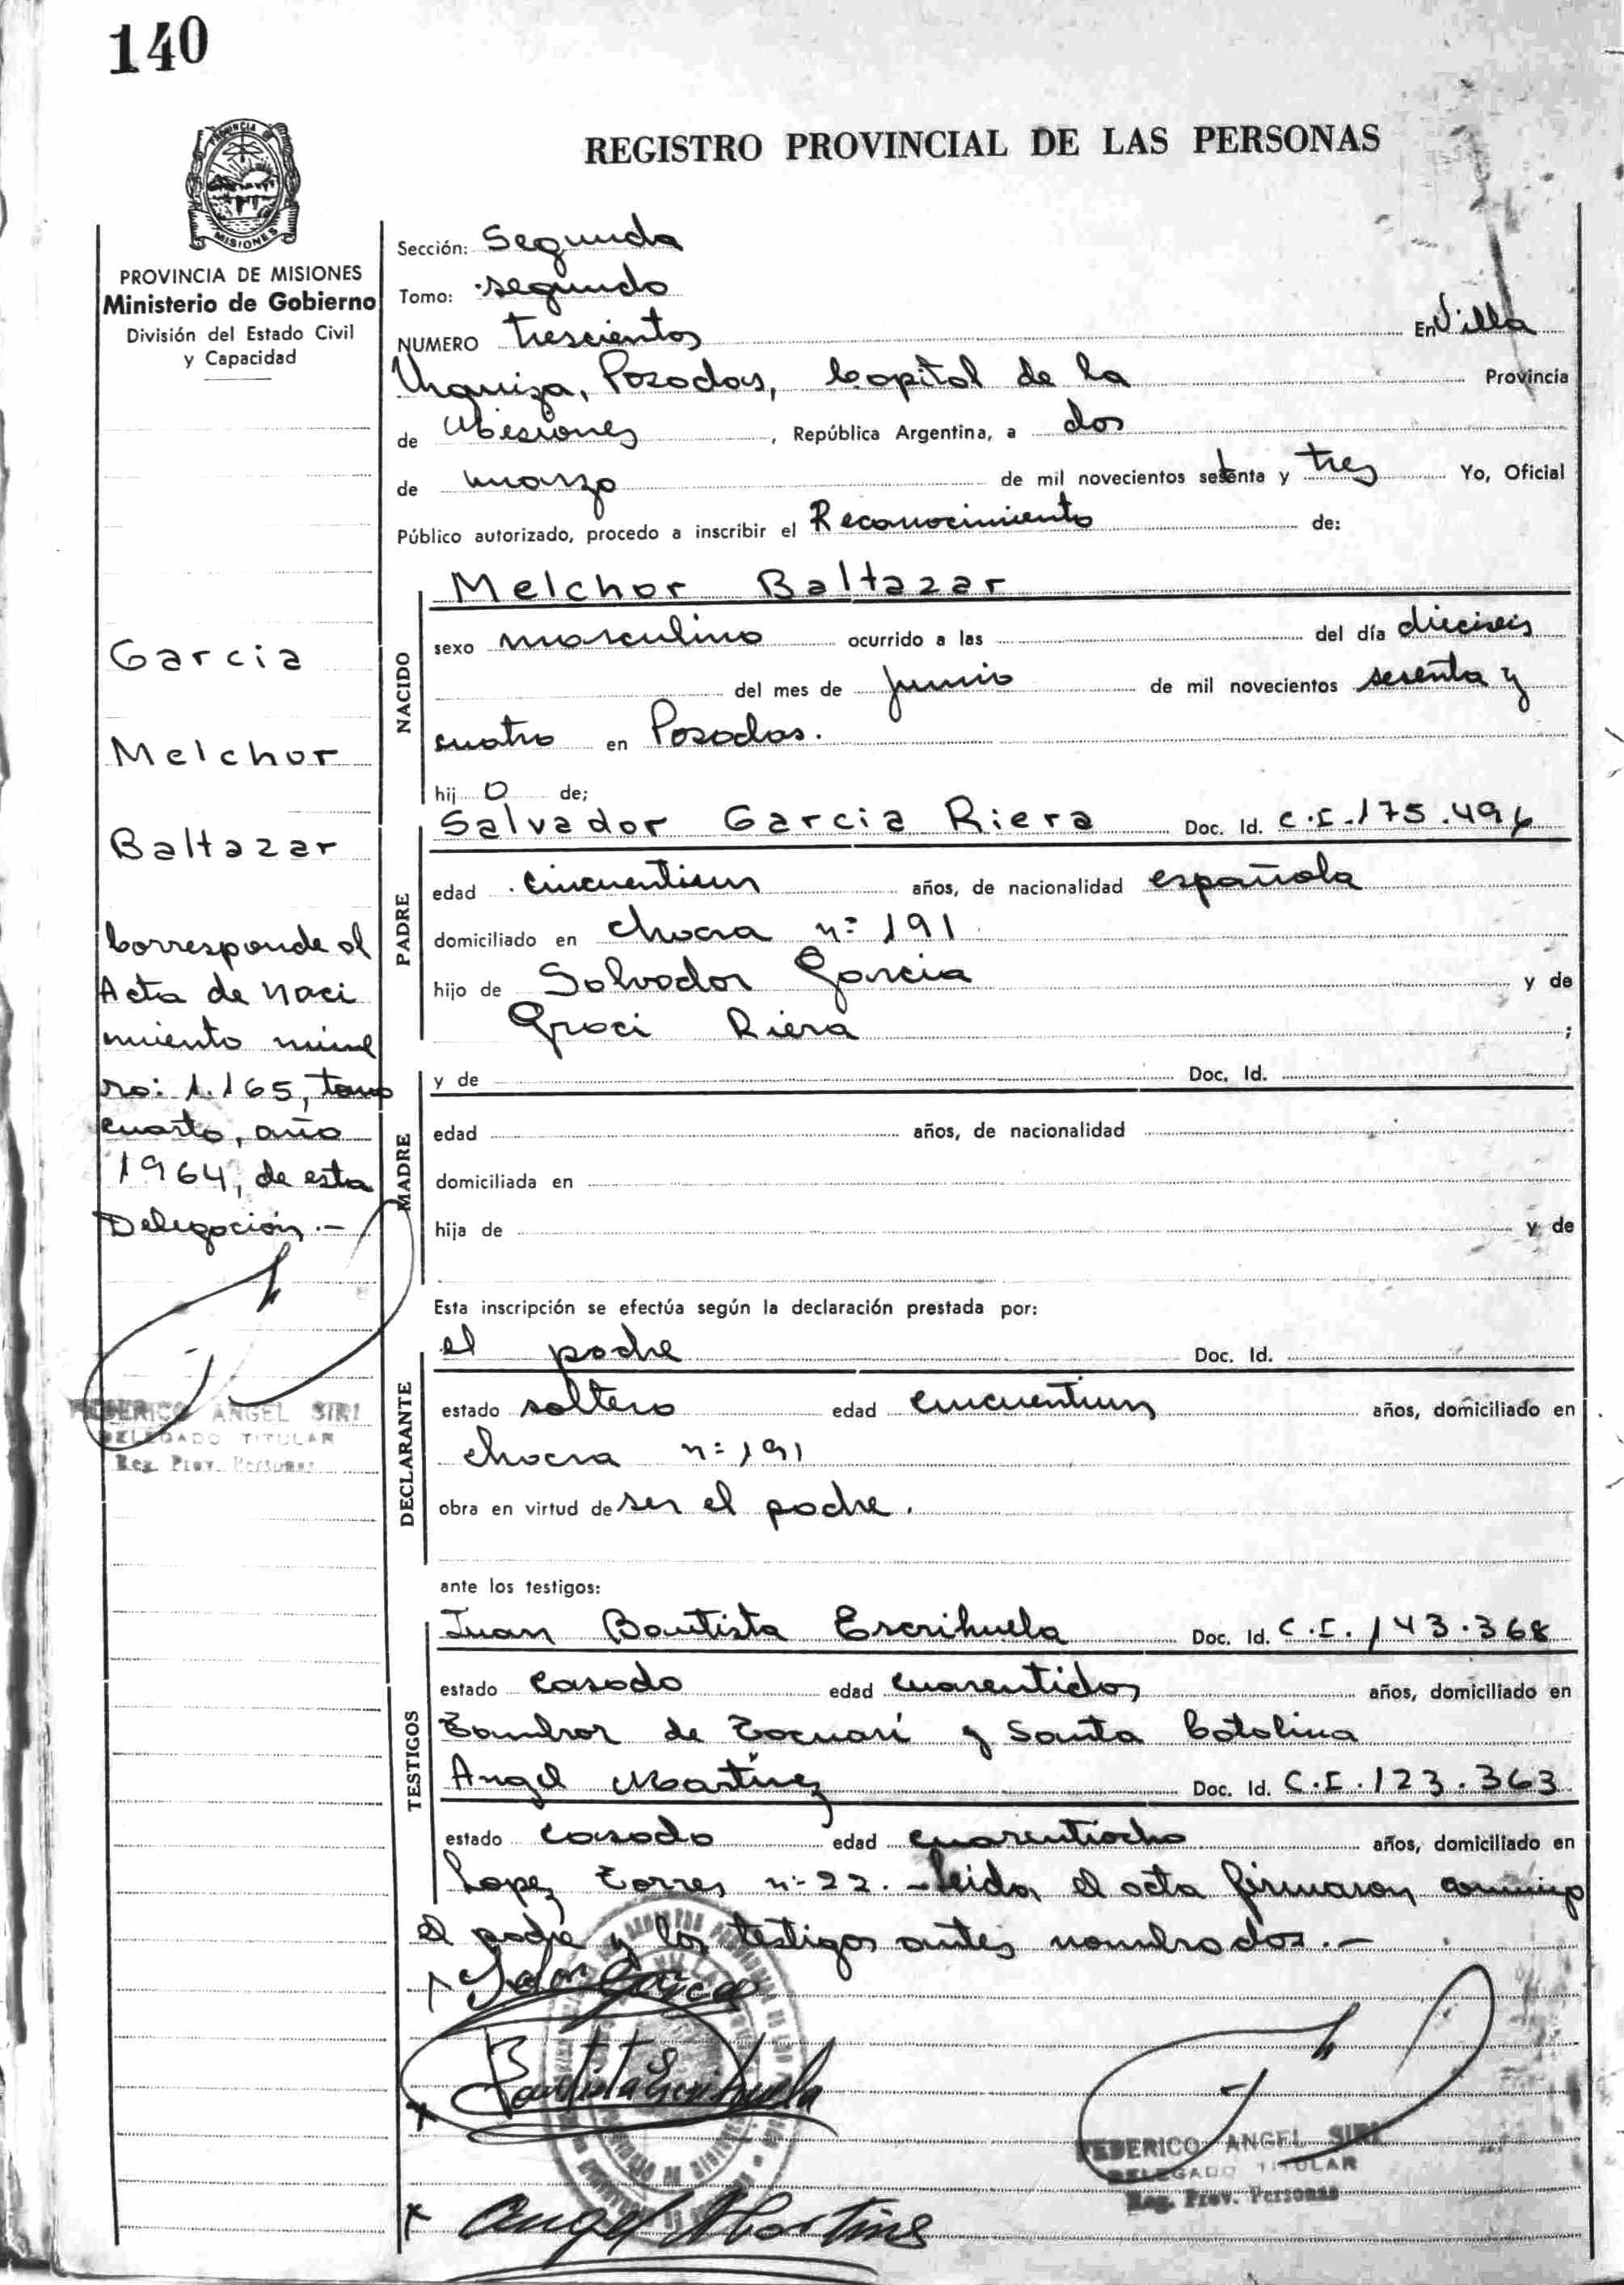 140
REGISTRO PROVINCIAL DE LAS PERSONAS
PROVINCIA
MISIONES
PROVINCIA DE MISIONES
Ministerio de Gobierno
División del Estado Civil
y Capacidad
Garcia
Melchor
Baltazar
Corresponde al
Acta de Naci
miento núme
ro: 1.165, tomo
cuarto, año
1964, de esta
Delegación.-
FEDERICO ANGEL SIRI
DELEGADO TITULAR
Reg. Prov. Personas
Sección: Segunda
Tomo: segundo
NUMERO trescientos En Villa
Urquiza, Posadas, Capital de la Provincia
de Misiones, República Argentina, a dos
de marzo de mil novecientos setenta y tres Yo, Oficial
Público autorizado, procedo a inscribir el Reconocimiento de:
NACIDO
Melchor Baltazar
sexo masculino ocurrido a las del día dieciseis
del mes de junio de mil novecientos sesenta y
cuatro en Posadas.
hij o de;
PADRE
Salvador Garcia Riera Doc. Id. C.I. 175.496
edad cincuentiun años, de nacionalidad española
domiciliado en chacra nº 191
hijo de Salvador Garcia y de
Graci Riera ;
MADRE
y de Doc. Id.
edad años, de nacionalidad
domiciliada en
hija de y de
Esta inscripción se efectúa según la declaración prestada por:
DECLARANTE
el padre Doc. Id.
estado soltero edad cincuentiun años, domiciliado en
chacra nº 191
obra en virtud de ser el padre.
ante los testigos:
TESTIGOS
Juan Bautista Escrihuela Doc. Id. C.I. 143.368
estado casado edad cuarentidos años, domiciliado en
Tambor de Tacuarí y Santa Catalina
Angel Martinez Doc. Id. C.I. 123.363
estado casado edad cuarentiocho años, domiciliado en
Lopez Torres nº 22. - leida el acta firmaron conmigo
el padre y los testigos antes nombrados.-
Bautista Escrihuela
FEDERICO ANGEL SIRI
DELEGADO TITULAR
Reg. Prov. Personas
Angel Martine